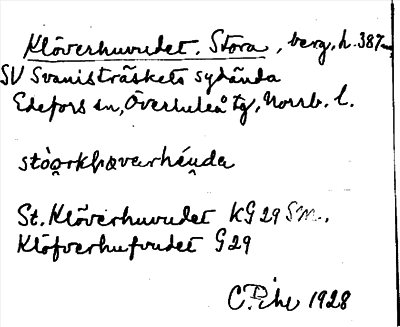 Klöverhuvudet. Stora, berg, h. 387 m
SV Svanisträskets sydända
Edefors sn, Överluleå tg, Norrb. l.
stòo̯rkþæverhéu̯da
St. Klöverhuvudet KG 29 SM.,
Klöfverhufvudet G 29
C. Pihl 1928